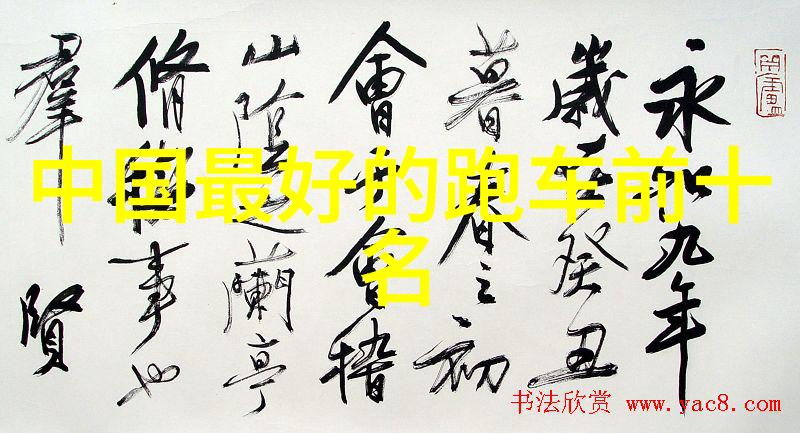 中国最好的跑车前十
名
永和九年
歲在癸丑
暮春之初
會會稽
山陰之蘭亭
脩禊事也
羣賢
书法欣赏 www.yac8.com